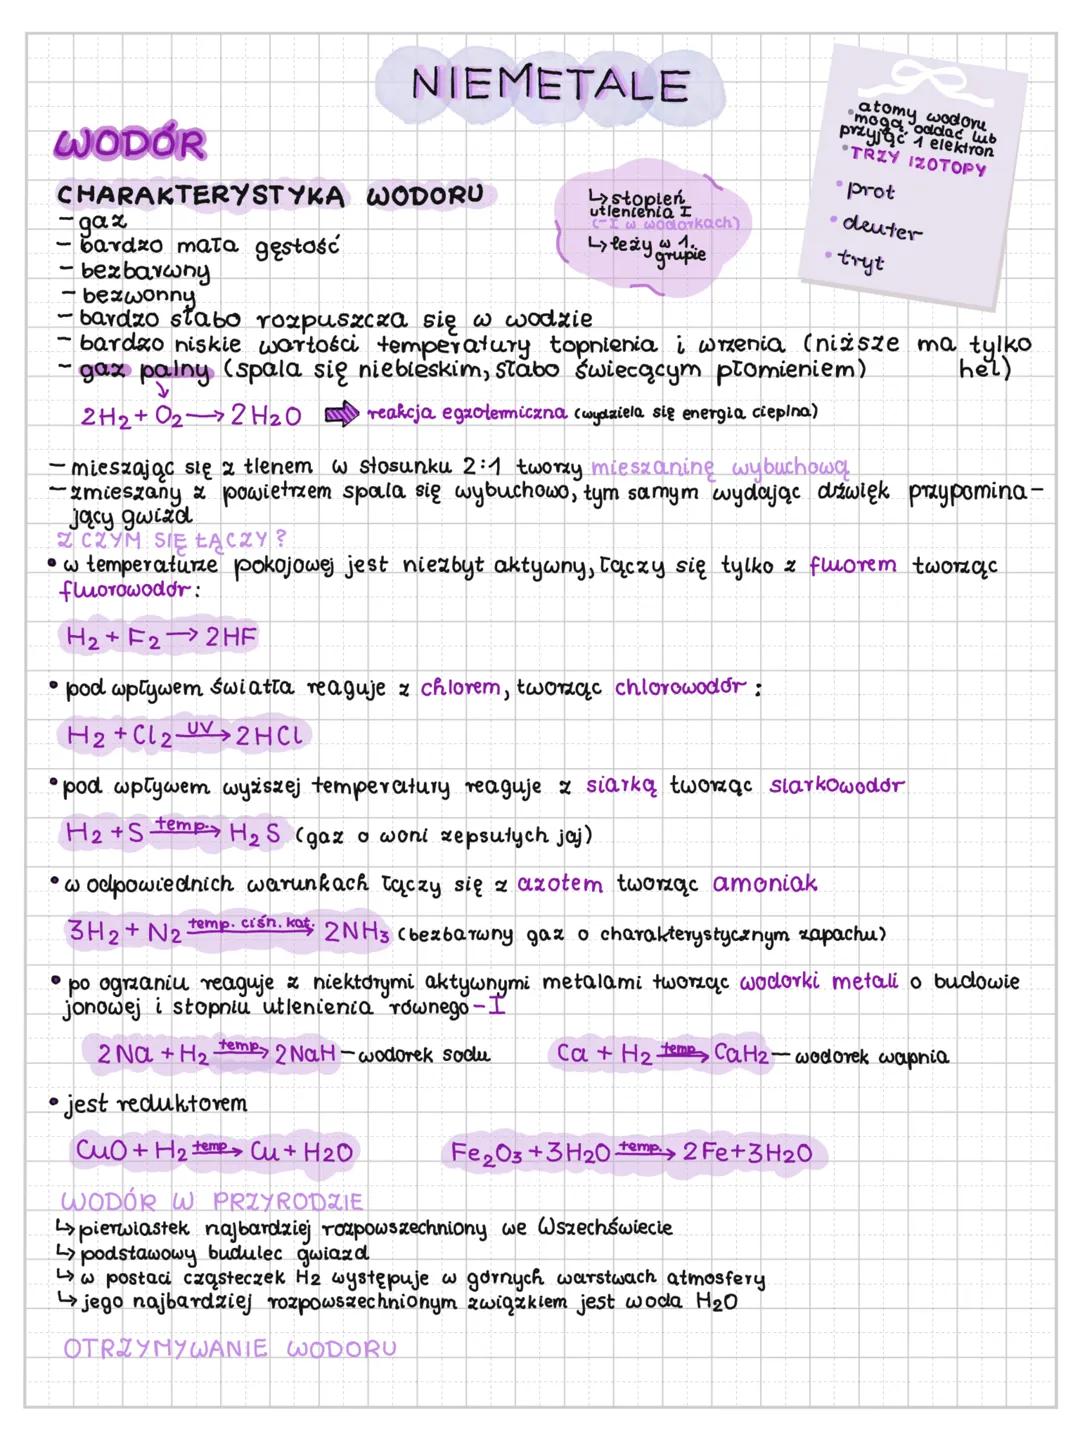 NIEMETALE
atomy wodoru
mogą oddać lub
przyjąć 1 elektron
TRZY IZOTOPY
• prot
• deuter
• tryt
WODÓR
CHARAKTERYSTYKA WODORU
↳ stopień
utlenienia I
(-I w wodorkach)
↳ leży w 1.
grupie
- gaz
- bardzo mała gęstość
- bezbarwny
- bezwonny
- bardzo słabo rozpuszcza się w wodzie
- bardzo niskie wartości temperatury topnienia i wrzenia (niższe ma tylko
hel)
- gaz palny (spala się niebieskim, słabo świecącym płomieniem)
2H2 + O2 → 2H2O ⇒ reakcja egzotermiczna (wydziela się energia cieplna)
- mieszając się z tlenem w stosunku 2:1 tworzy mieszaninę wybuchową
- zmieszany z powietrzem spala się wybuchowo, tym samym wydając dźwięk przypomina-
jący gwizd
Z CZYM SIĘ ŁĄCZY?
• w temperaturze pokojowej jest niezbyt aktywny, łączy się tylko z fluorem tworząc
fluorowodór:
H2 + F2 → 2HF
• pod wpływem światła reaguje z chlorem, tworząc chlorowodór:
H2 + Cl2 —UV→ 2HCl
• pod wpływem wyższej temperatury reaguje z siarką tworząc siarkowodór
H2 + S —temp.→ H2S (gaz o woni zepsutych jaj)
• w odpowiednich warunkach łączy się z azotem tworząc amoniak
3H2 + N2 —temp. ciśn. kat.→ 2NH3 (bezbarwny gaz o charakterystycznym zapachu)
• po ogrzaniu reaguje z niektórymi aktywnymi metalami tworząc wodorki metali o budowie
jonowej i stopniu utlenienia równego -I
2Na + H2 —temp.→ 2NaH - wodorek sodu
Ca + H2 —temp.→ CaH2 - wodorek wapnia
• jest reduktorem
CuO + H2 —temp.→ Cu + H2O
Fe2O3 + 3H2O —temp.→ 2Fe + 3H2O
WODÓR W PRZYRODZIE
↳ pierwiastek najbardziej rozpowszechniony we Wszechświecie
↳ podstawowy budulec gwiazd
↳ w postaci cząsteczek H2 występuje w górnych warstwach atmosfery
↳ jego najbardziej rozpowszechnionym związkiem jest woda H2O
OTRZYMYWANIE WODORU